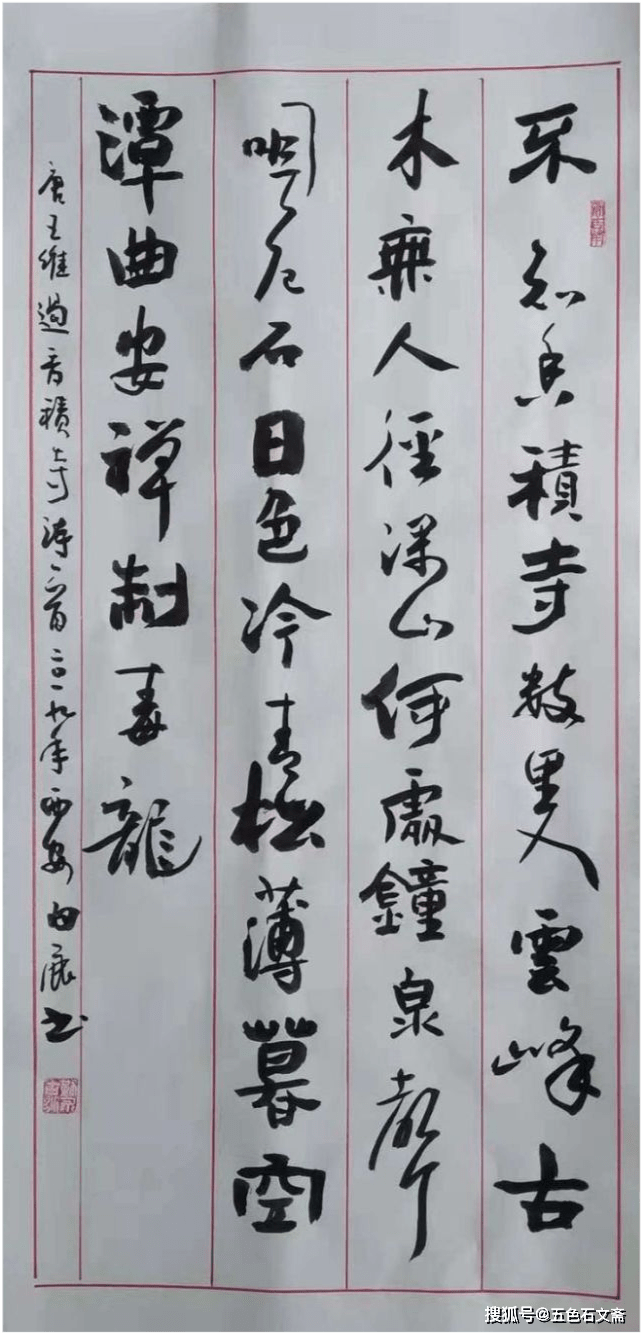 不知香積寺數里入雲峰古
木無人徑深山何處鐘泉聲
咽危石日色冷青松薄暮空
潭曲安禪制毒龍
唐王維過香積寺詩一首二〇一九年西安白展书
搜狐号@五色石文斋